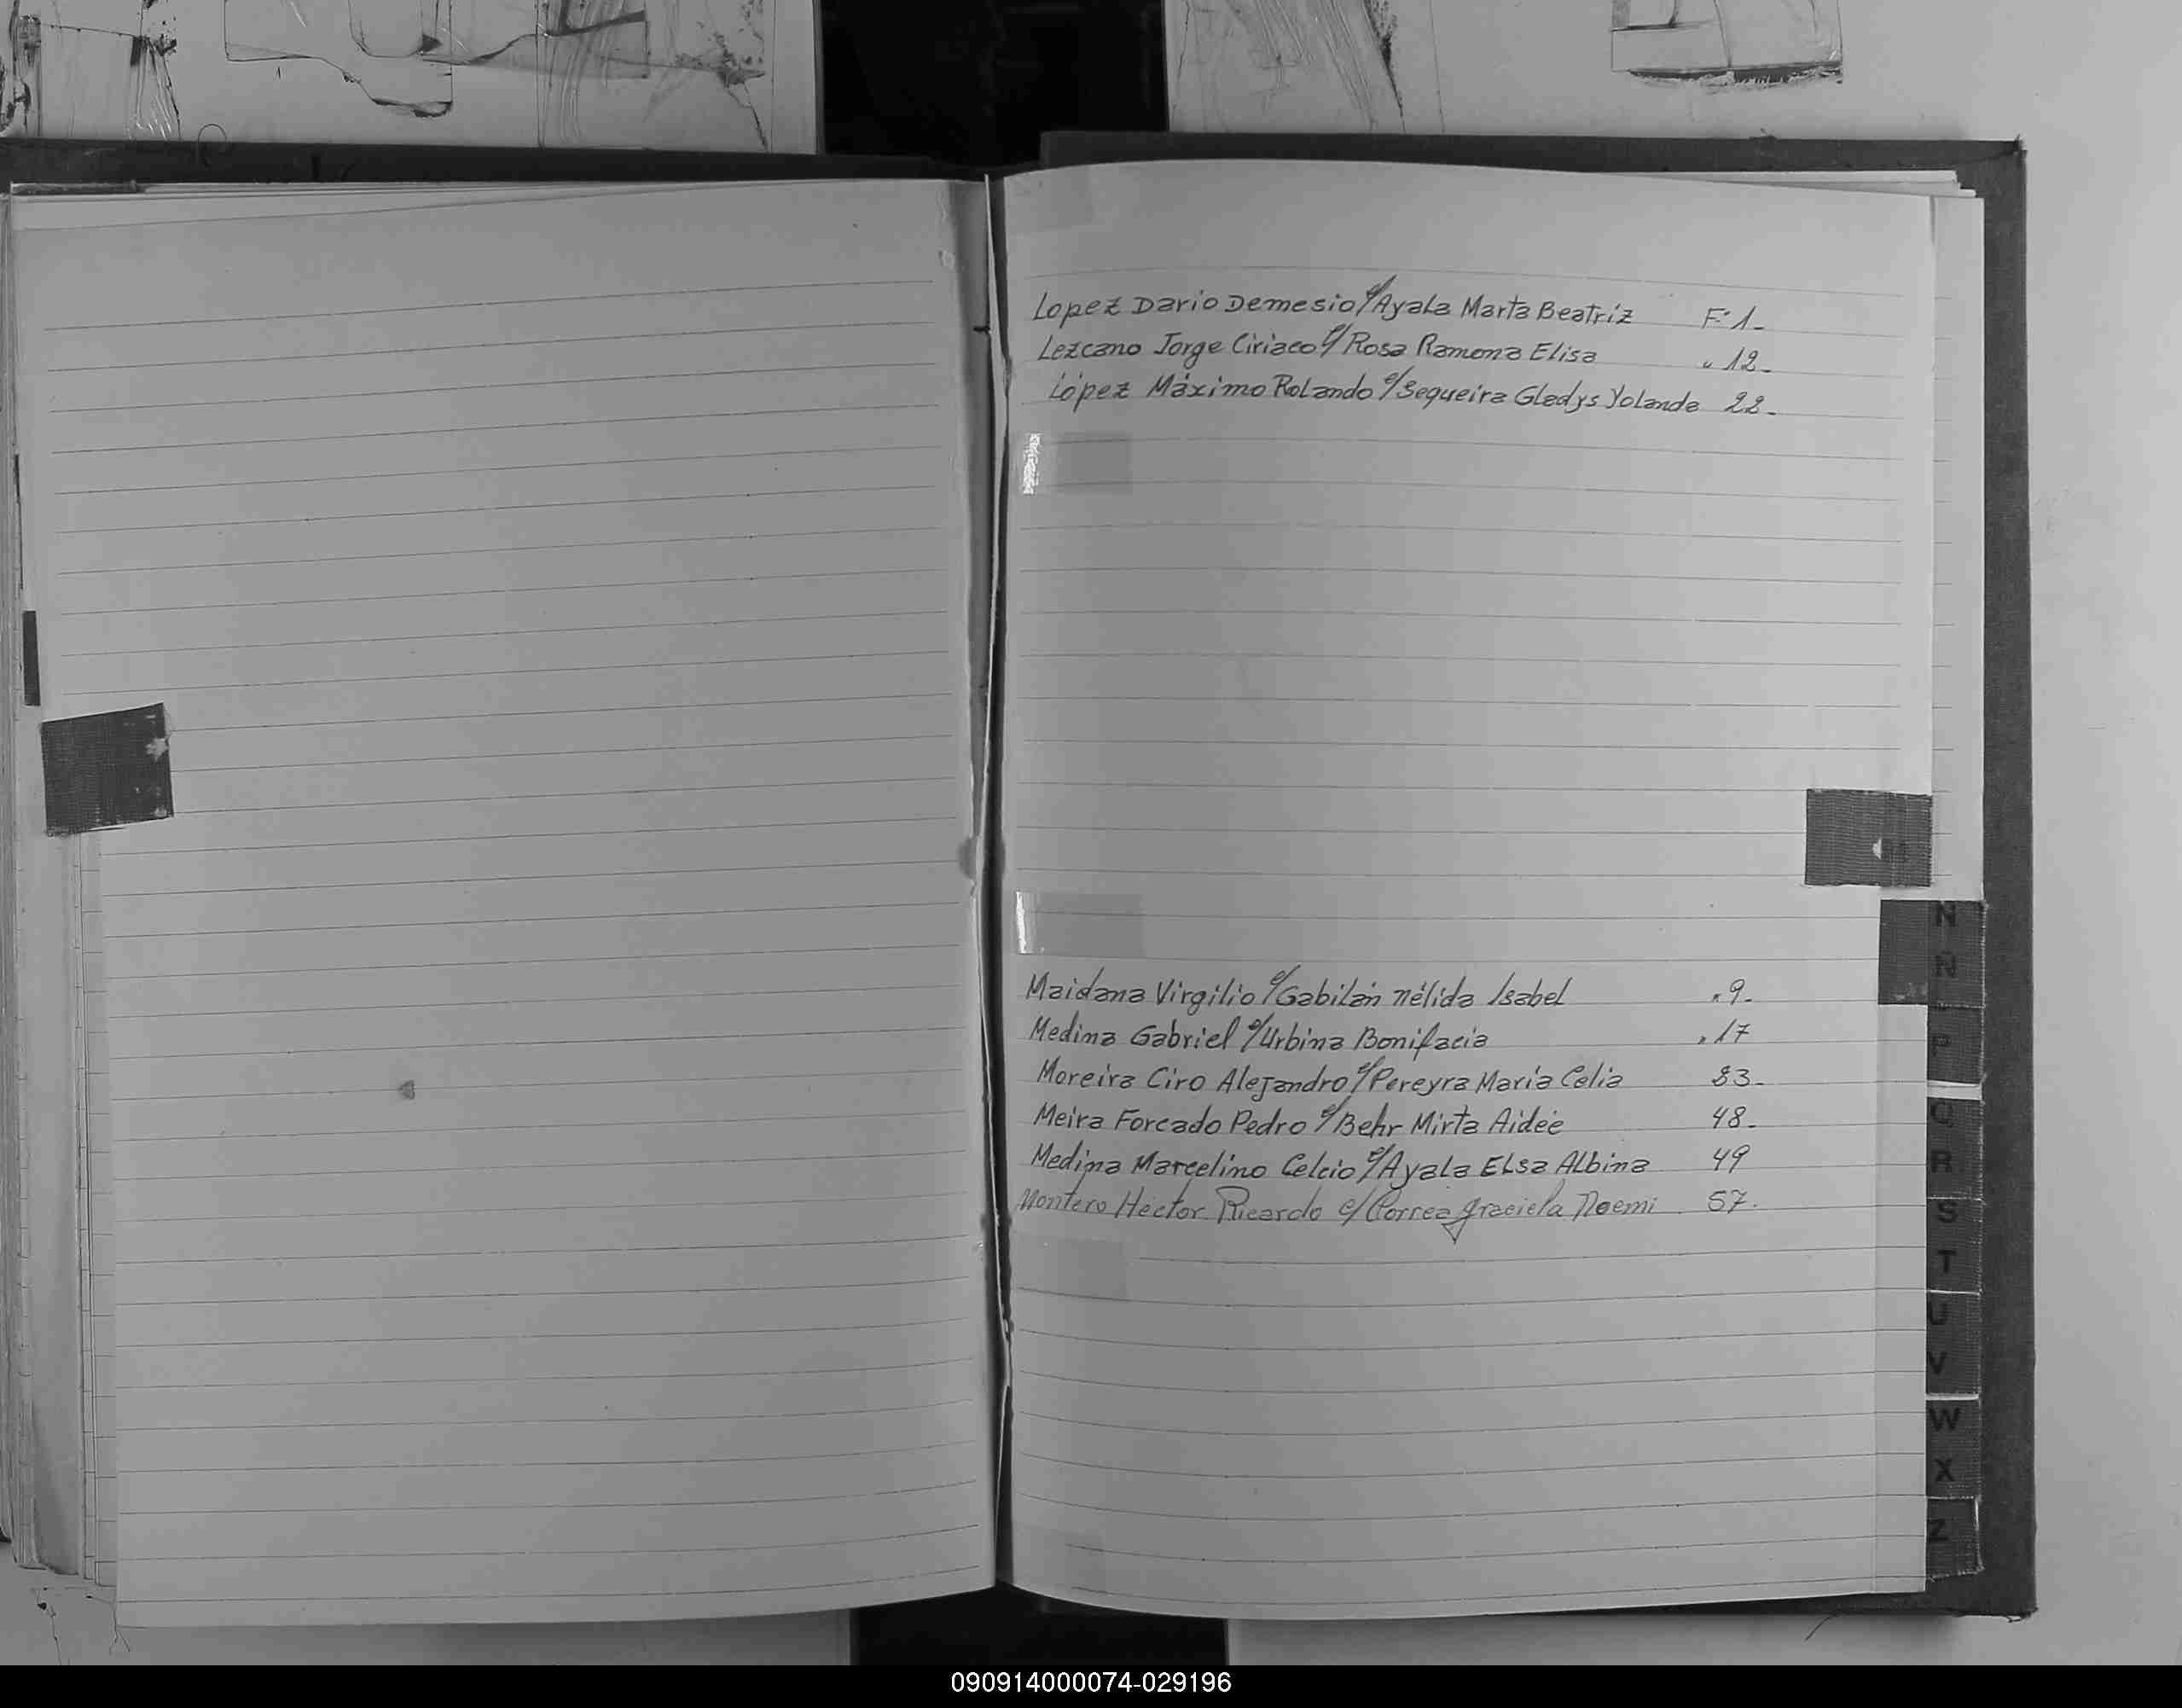 Lopez Dario Demesio c/Ayala Marta Beatriz F° 1-
Lezcano Jorge Ciriaco c/ Rosa Ramona Elisa " 12-
López Máximo Rolando c/Sequeira Gladys Yolanda 22-
Maidana Virgilio c/Gabilán Nélida Isabel "9-
Medina Gabriel c/Urbina Bonifacia "17
Moreira Ciro Alejandro c/Pereyra María Celia 33-
Meira Forcado Pedro c/Behr Mirta Aidée 48-
Medina Marcelino Celcio c/Ayala Elsa Albina 49
Montero Hector Ricardo c/ Correa Graciela Noemi 57.
N
Ñ
P
Q
R
S
T
U
V
W
X
Z
090914000074-029196